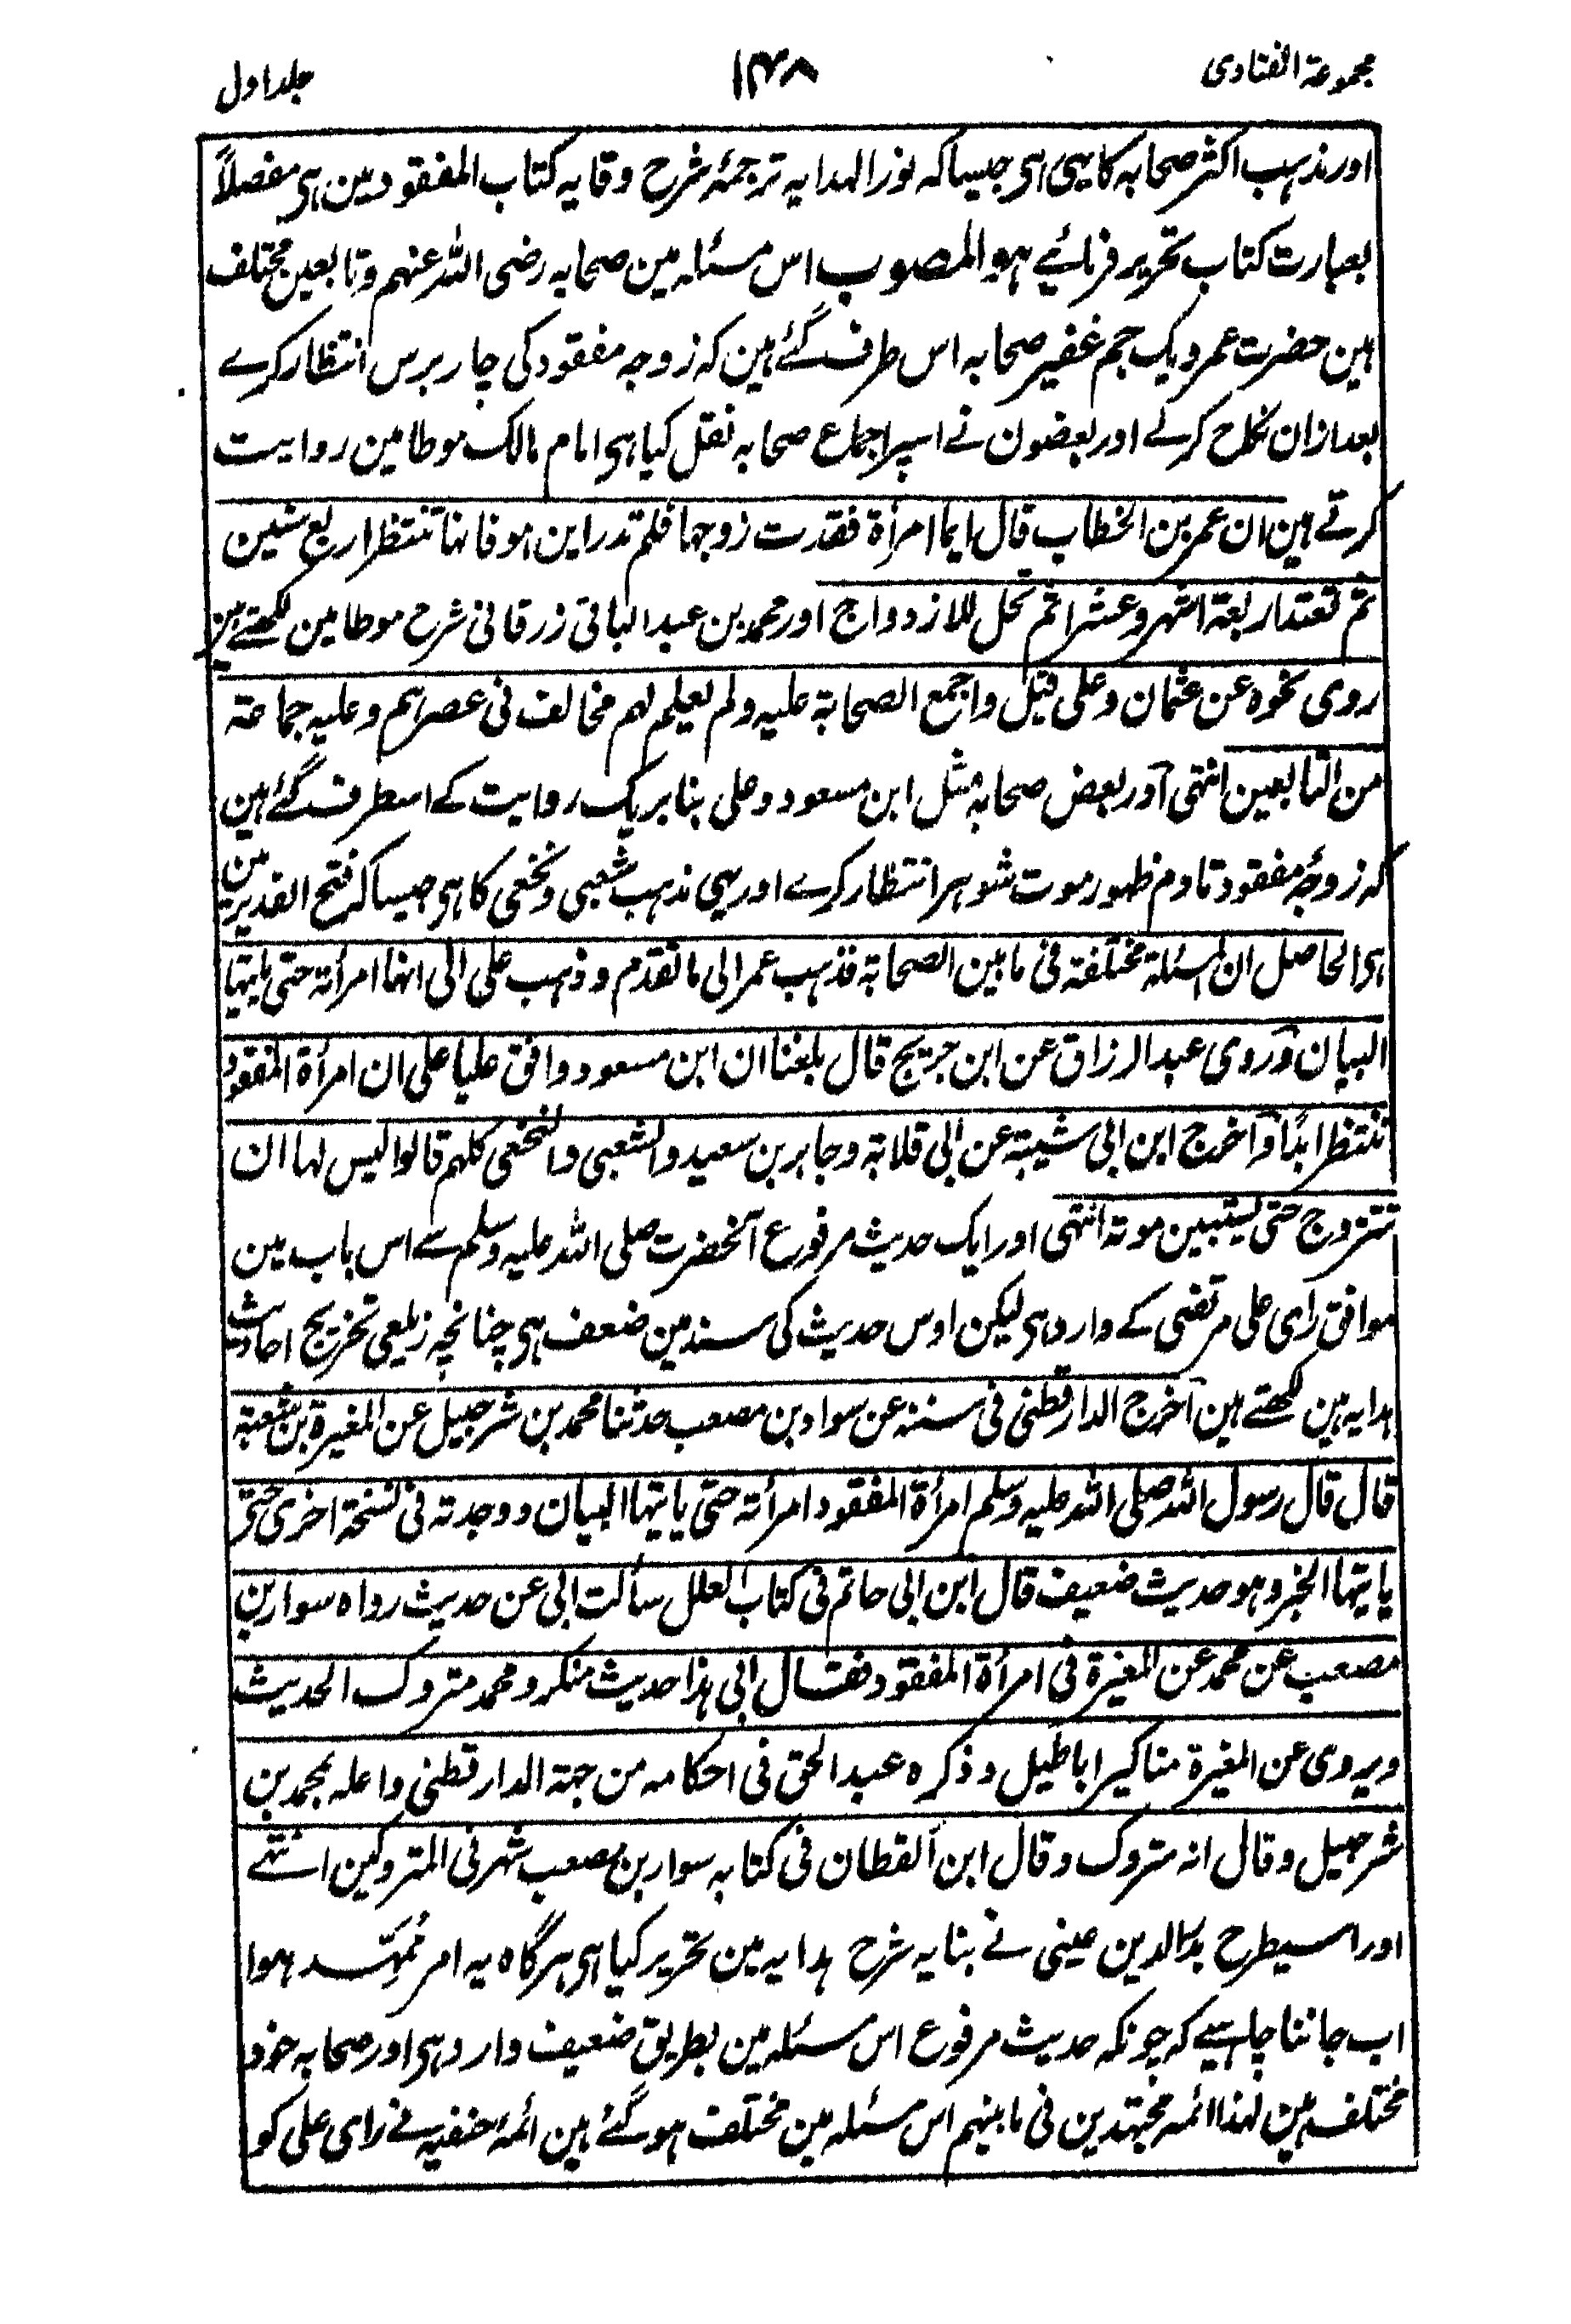 مجموعة الفتاوی ۱۴۸ جلد اول
اور مذہب اکثر صحابہ کا یہی ہی جیسا کہ نور الہدایہ ترجمۂ شرح وقایہ کتاب المفقود مین ہی مفصلاً
بعبارت کتاب تحریر فرمائیے ہو المصوب اس مسئلہ مین صحابہ رضی اللہ عنہم و تابعین مختلف
ہین حضرت عمر و یک جم غفیر صحابہ اس طرف گئے ہین کہ زوجہ مفقود کی چار برس انتظار کرے
بعد ازان نکاح کرلے اور بعضون نے اسپر اجماع صحابہ نقل کیا ہی امام مالک موطا مین روایت
کرتے ہین ان عمر بن الخطاب قال ایما امرأة فقدت زوجہا فلم تدر این ہو فانہا تنتظر اربع سنین
ثم تعتد اربعة اشہر و عشرا ثم تحل للازدواج اور محمد بن عبد الباقی زرقانی شرح موطا مین لکھتے ہین
روی نحوہ عن عثمان و علی قیل و اجمع الصحابة علیہ ولم یعلم لہم مخالف فی عصرہم و علیہ جماعة
من التابعین انتہی اور بعض صحابہ مثل ابن مسعود و علی بنا بر یک روایت کے اسطرف گئے ہین
کہ زوجۂ مفقود تا دم ظہور موت شوہر انتظار کرے اور یہی مذہب شعبی و نخعی کا ہی جیسا کہ فتح القدیر مین
ہی الحاصل ان المسئلة مختلفة فی ما بین الصحابة فذہب عمر الی ما تقدم و ذہب علی الی انہا امرأتہ حتی یاتیہا
البیان و روی عبد الرزاق عن ابن جریج قال بلغنا ان ابن مسعود وافق علیا علی ان امرأة المفقود
تنتظر ابدًا و اخرج ابن ابی شیبة عن ابی قلابة و جابر بن سعید والشعبی والنخعی کلہم قالوا لیس لہا ان
تتزوج حتی یستبین موتہ انتہی اور ایک حدیث مرفوع آنحضرت صلی اللہ علیہ وسلم سے اس باب مین
موافق رای علی مرتضی کے وارد ہی لیکن اوس حدیث کی سند مین ضعف ہی چنانچہ زیلعی تخریج احادیث
ہدایہ مین لکھتے ہین اخرج الدارقطنی فی سننہ عن سواد بن مصعب حدثنا محمد بن شرحبیل عن المغیرة بن شعبة
قال قال رسول اللہ صلی اللہ علیہ وسلم امرأة المفقود امرأتہ حتی یاتیہا البیان و وجدتہ فی نسخة اخری حتی
یاتیہا الخبر و ہو حدیث ضعیف قال ابن ابی حاتم فی کتاب العلل سألت ابی عن حدیث رواہ سوار بن
مصعب عن محمد عن المغیرة فی امرأة المفقود فقال ابی ہذا حدیث منکر و محمد متروک الحدیث
ویروی عن المغیرة مناکیر اباطیل و ذکرہ عبد الحق فی احکامہ من جہة الدارقطنی و اعلہ بمحمد بن
شرحبیل و قال انہ متروک و قال ابن القطان فی کتابہ سوار بن مصعب شہر فی المتروکین انتہے
اور اسیطرح بدر الدین عینی نے بنایہ شرح ہدایہ مین تحریر کیا ہی ہر گاہ یہ امر مُمہّد ہوا
اب جاننا چاہیے کہ چونکہ حدیث مرفوع اس مسئلہ مین بطریق ضعیف وارد ہی اور صحابہ خود
مختلف ہین لہذا ائمہ مجتہدین فی ما بینہم اس مسئلہ مین مختلف ہو گئے ہین ائمۂ حنفیہ نے رای علی کو